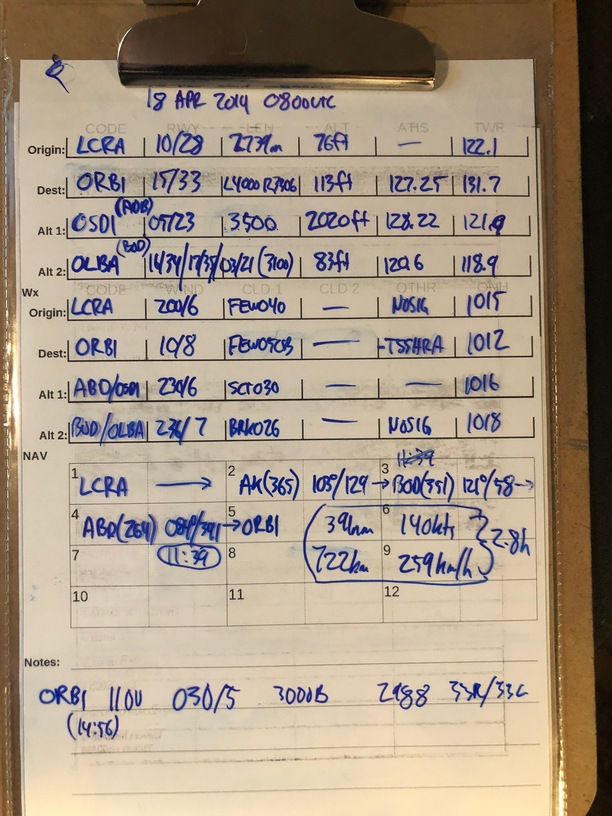 18 APR 2014 0800UTC
CODE RWY LEN ALT ATIS TWR
Origin: LCRA 10/28 2739m 76ft — 122.1
Dest: ORBI 15/33 L4000 R3306 113ft 127.25 131.7
(ABD)
Alt 1: OSDI 05/23 3500 2020ft 128.22 121.9
(BOD)
Alt 2: OLBA 16/34/17/35/03/21 (3100) 83ft 120.6 118.9
Wx CODE WIND CLD 1 CLD 2 OTHR QNH
Origin: LCRA 200/6 FEW040 — NOSIG 1015
Dest: ORBI 10/8 — -TSSHRA 1012
Alt 1: ABD/OSDI 230/6 SCT030 — — 1016
Alt 2: BOD/OLBA 236/7 BRK026 — NOSIG 1018
NAV
11:39
1 LCRA → 2 AK(365) 105°/129 → 3 BOD(351) 121°/58 →
4 ABD(264) 084°/391 → 5 ORBI 391nm 6 140kts 2.8h
7 11:39 8 722km 9 259km/h
10 11 12
Notes:
ORBI 110U 030/5 3000B 2988 33R/33L
(14:56)